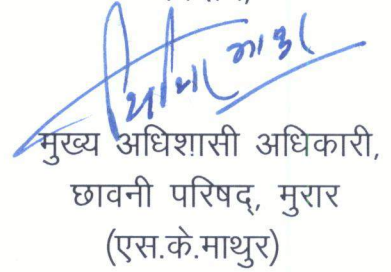 मुख्य अधिशासी अधिकारी,
छावनी परिषद्, मुरार
(एस.के.माथुर)